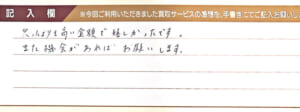 記入欄
※今回ご利用いただきました買取サービスの感想を、手書きにてご記入お願い
思ったよりも高い金額で嬉しかったです。
また機会があれば お願いします。